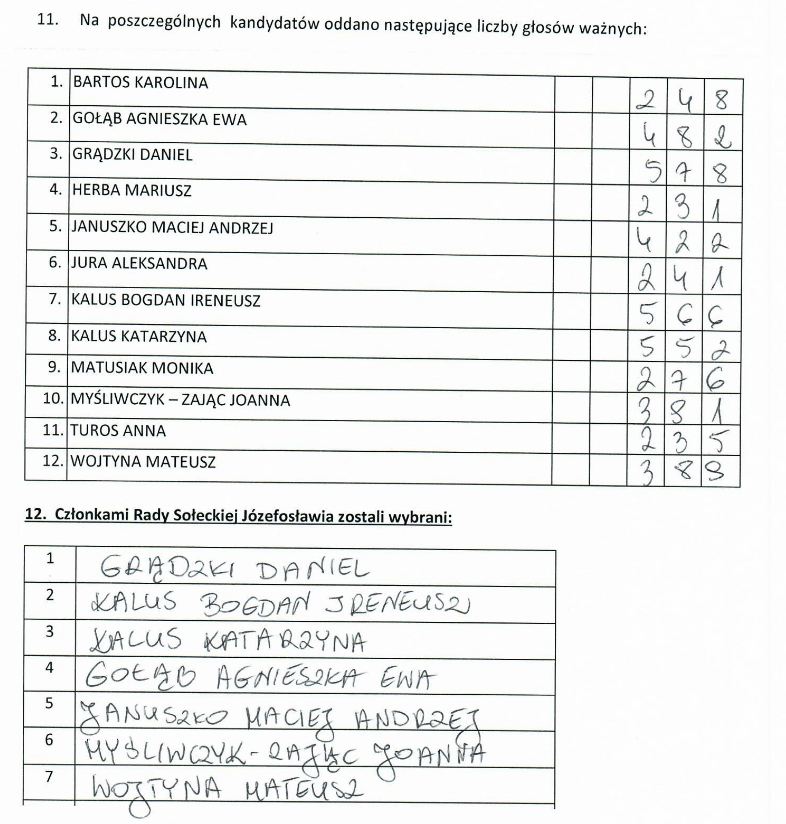 11. Na poszczególnych kandydatów oddano następujące liczby głosów ważnych:
1. BARTOS KAROLINA 2 4 8
2. GOŁĄB AGNIESZKA EWA 4 8 2
3. GRĄDZKI DANIEL 5 7 8
4. HERBA MARIUSZ 2 3 1
5. JANUSZKO MACIEJ ANDRZEJ 4 2 2
6. JURA ALEKSANDRA 2 4 1
7. KALUS BOGDAN IRENEUSZ 5 6 6
8. KALUS KATARZYNA 5 5 2
9. MATUSIAK MONIKA 2 7 6
10. MYŚLIWCZYK – ZAJĄC JOANNA 3 9 1
11. TUROS ANNA 2 3 5
12. WOJTYNA MATEUSZ 3 8 9
12. Członkami Rady Sołeckiej Józefosławia zostali wybrani:
1 GRĄDZKI DANIEL
2 KALUS BOGDAN IRENEUSZ
3 KALUS KATARZYNA
4 GOŁĄB AGNIESZKA EWA
5 JANUSZKO MACIEJ ANDRZEJ
6 MYŚLIWCZYK - ZAJĄC JOANNA
7 WOJTYNA MATEUSZ